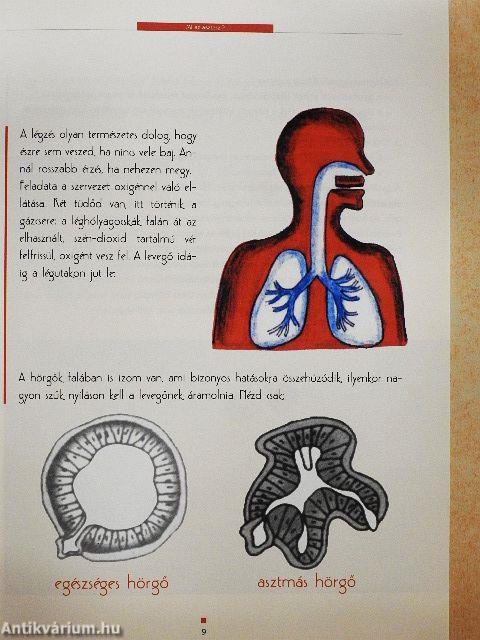 Mi az asztma?
A légzés olyan természetes dolog, hogy
észre sem veszed, ha nincs vele baj. An-
nál rosszabb érzés, ha nehezen megy.
Feladata a szervezet oxigénnel való el-
látása. Két tüdőd van, itt történik a
gázcsere: a léghólyagocskák falán át az
elhasznált, szén-dioxid tartalmú vér
felfrissül, oxigént vesz fel. A levegő idá-
ig a légutakon jut le:
A hörgők falában is izom van, ami bizonyos hatásokra összehúzódik, ilyenkor na-
gyon szűk nyíláson kell a levegőnek áramolnia. Nézd csak:
egészséges hörgő
asztmás hörgő
9
Antikvárium.hu